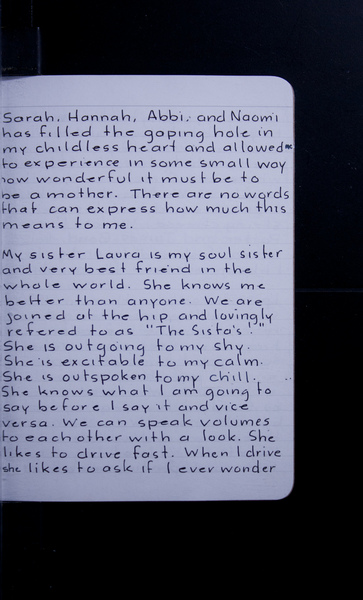 Sarah, Hannah, Abbi, and Naomi
has filled the gaping hole in
my childless heart and allowed me
to experience in some small way
how wonderful it must be to
be a mother. There are no words
that can express how much this
means to me.
My sister Laura is my soul sister
and very best friend in the
whole world. She knows me
better than anyone. We are
joined at the hip and lovingly
refered to as "The Sista's!"
She is outgoing to my shy.
She is excitable to my calm.
She is outspoken to my chill.
She knows what I am going to
say before I say it and vice
versa. We can speak volumes
to each other with a look. She
likes to drive fast. When I drive
she likes to ask if I ever wonder